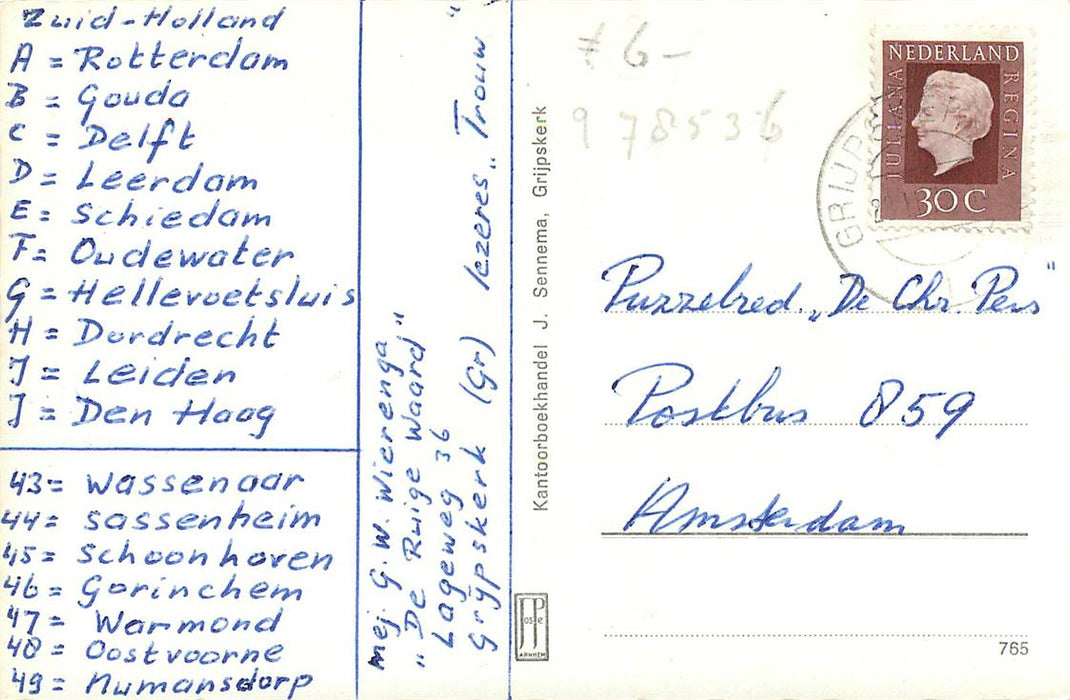 Zuid-Holland
A = Rotterdam
B = Gouda
C = Delft
D = Leerdam
E = Schiedam
F = Oudewater
G = Hellevoetsluis
H = Dordrecht
I = Leiden
J = Den Haag
43 = Wassenaar
44 = Sassenheim
45 = Schoonhoven
46 = Gorinchem
47 = Warmond
48 = Oostvoorne
49 = Numansdorp
mej. G. W. Wierenga
"De Ruige Waard"
Lageweg 36
Grijpskerk (Gr) lezeres „Trouw"
Kantoorboekhandel J. Sennema, Grijpskerk
6 -
978536
NEDERLAND
JULIANA REGINA
30 C
GRIJPS
Puzzelred. „De Chr. Pers"
Postbus 859
Amsterdam
JosPé
ARNHEM
765